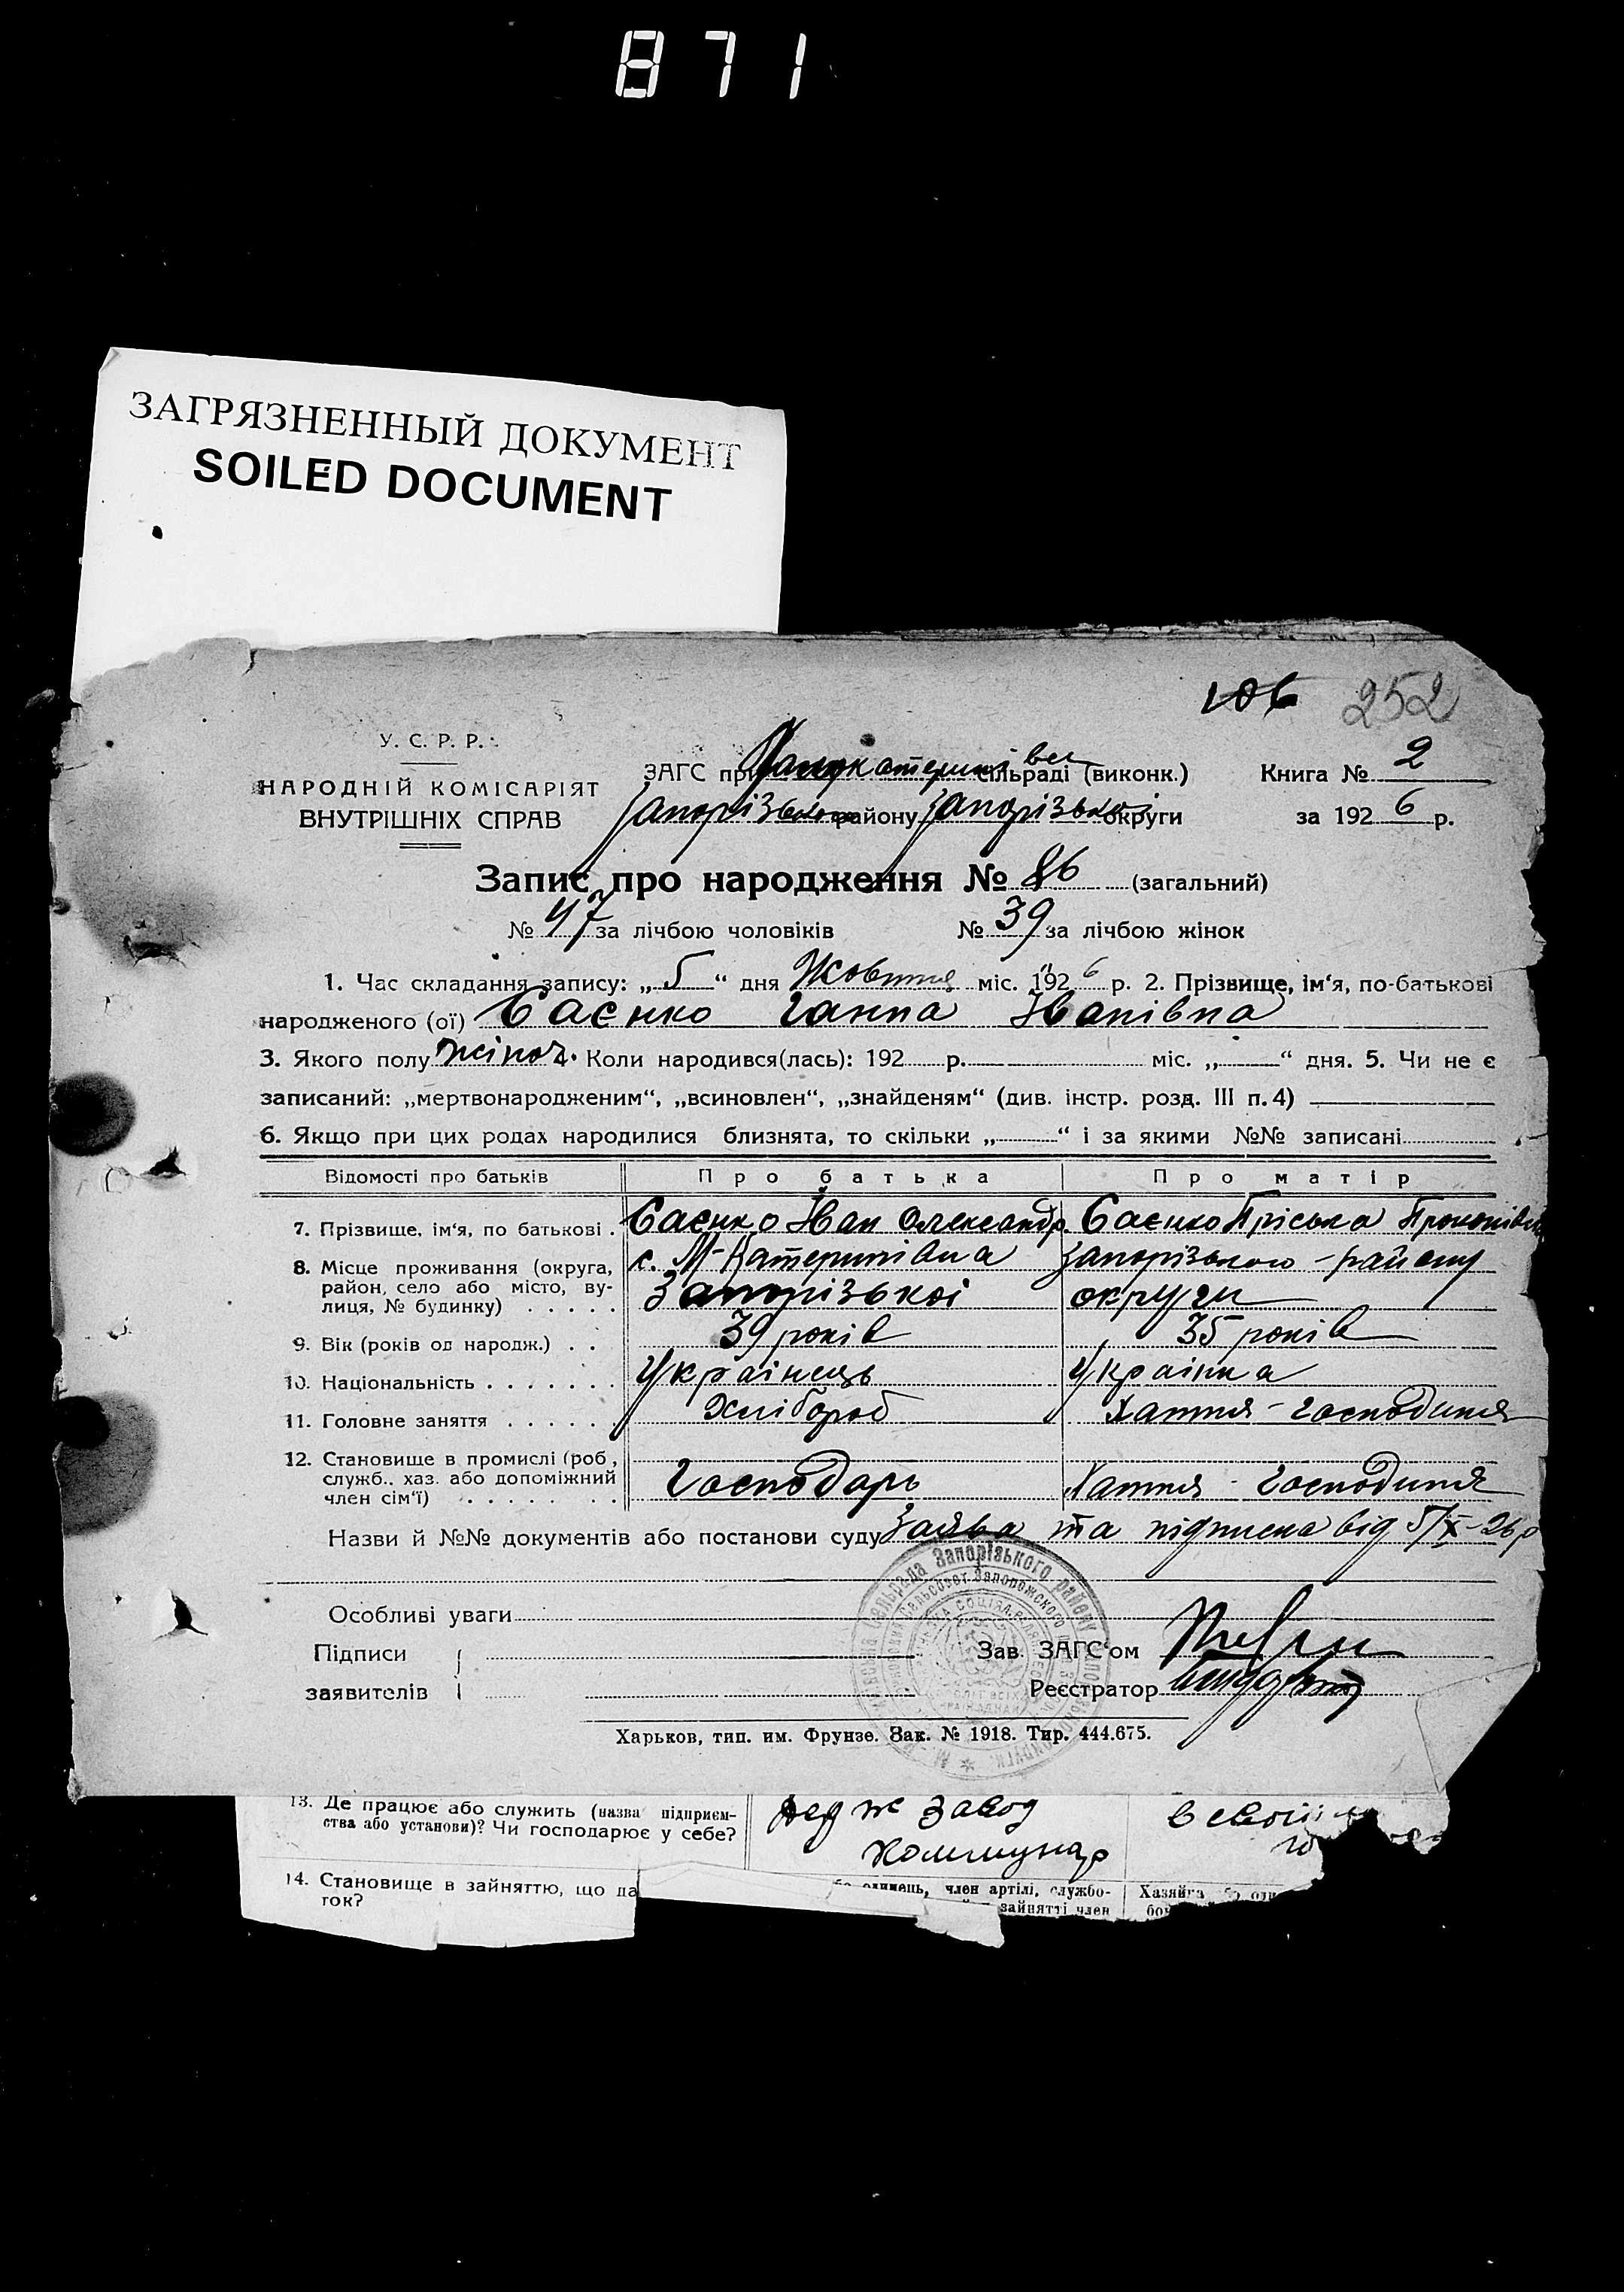 871
ЗАГРЯЗНЕННЫЙ ДОКУМЕНТ
SOILED DOCUMENT
106 252
У. С. Р. Р.
НАРОДНІЙ КОМІСАРІЯТ
ВНУТРІШНІХ СПРАВ
ЗАГС при сільраді (виконк.)
Запорізького району Запорізької округи
Книга № 2
за 1926 р.
Запис про народження № 86 (загальний)
№ 47 за лічбою чоловіків № 39 за лічбою жінок
1. Час складання запису: „5“ дня Жовтня міс. 1926 р. 2. Прізвище, ім'я, по-батькові
народженого (ої) Саєнко Ганна Іванівна
3. Якого полу жіноч. 4. Коли народився(лась): 192 р. міс. „ “ дня. 5. Чи не є
записаний: „мертвонародженим“, „всиновлен“, „знайденям“ (див. інстр. розд. III п. 4)
6. Якщо при цих родах народилися близнята, то скільки „ “ і за якими №№ записані
Відомості про батьків Про батька Про матір
7. Прізвище, ім'я, по батькові . Саєнко Іван Олександр. Саєнко Пріська Прокопівна
8. Місце проживання (округа, с. М-Катеринівка Запорізького-району
район, село або місто, ву-
лиця, № будинку) . . . . . Запорізької округи
9. Вік (років од народж.) . . 39 років 35 років
10. Національність . . . . . . . Українець Українка
11. Головне заняття . . . . . . Хлібороб Хатня-господиня
12. Становище в промислі (роб.,
служб., хаз. або допоміжний
член сім'ї) . . . . . . . Господарь Хатня-господиня
Назви й №№ документів або постанови суду Заява та підписка від 5/X-26р
Особливі уваги
Підписи
заявителів
Зав. ЗАГС'ом
Реєстратор
Харьков, тип. им. Фрунзе. Зак. № 1918. Тир. 444.675.
13. Де працює або служить (назва підприєм-
ства або установи)? Чи господарює у себе?
Держ завод
Коммунар
в своїй
14. Становище в зайняттю, що да
ток?
одинець, член артілі, службо-
зайнятті член
Хазяйка